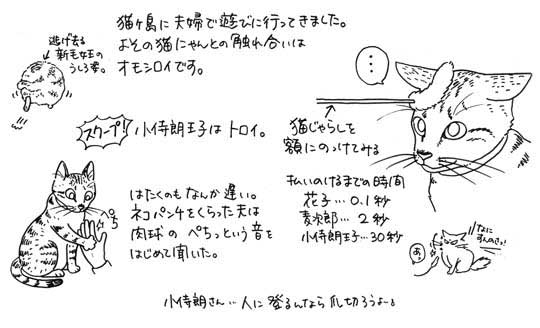 猫ヶ島に夫婦で遊びに行ってきました。
よその猫にゃんとの触れ合いは
オモシロイです。
逃げ去る
新毛女王の
うしろ姿。
スクープ!
小侍朗王子はトロイ。
…
猫じゃらしを
額にのっけてみる
払いのけるまでの時間
花子…0.1秒
麦次郎…2秒
小侍朗王子…30秒
はたくのもなんか遅い。
ネコパンチをくらった夫は
肉球のぺちっという音を
はじめて聞いた。
ぺち
なに
すんのさっ!
あっ
小侍朗さん…人に登るんなら爪切ろうよー